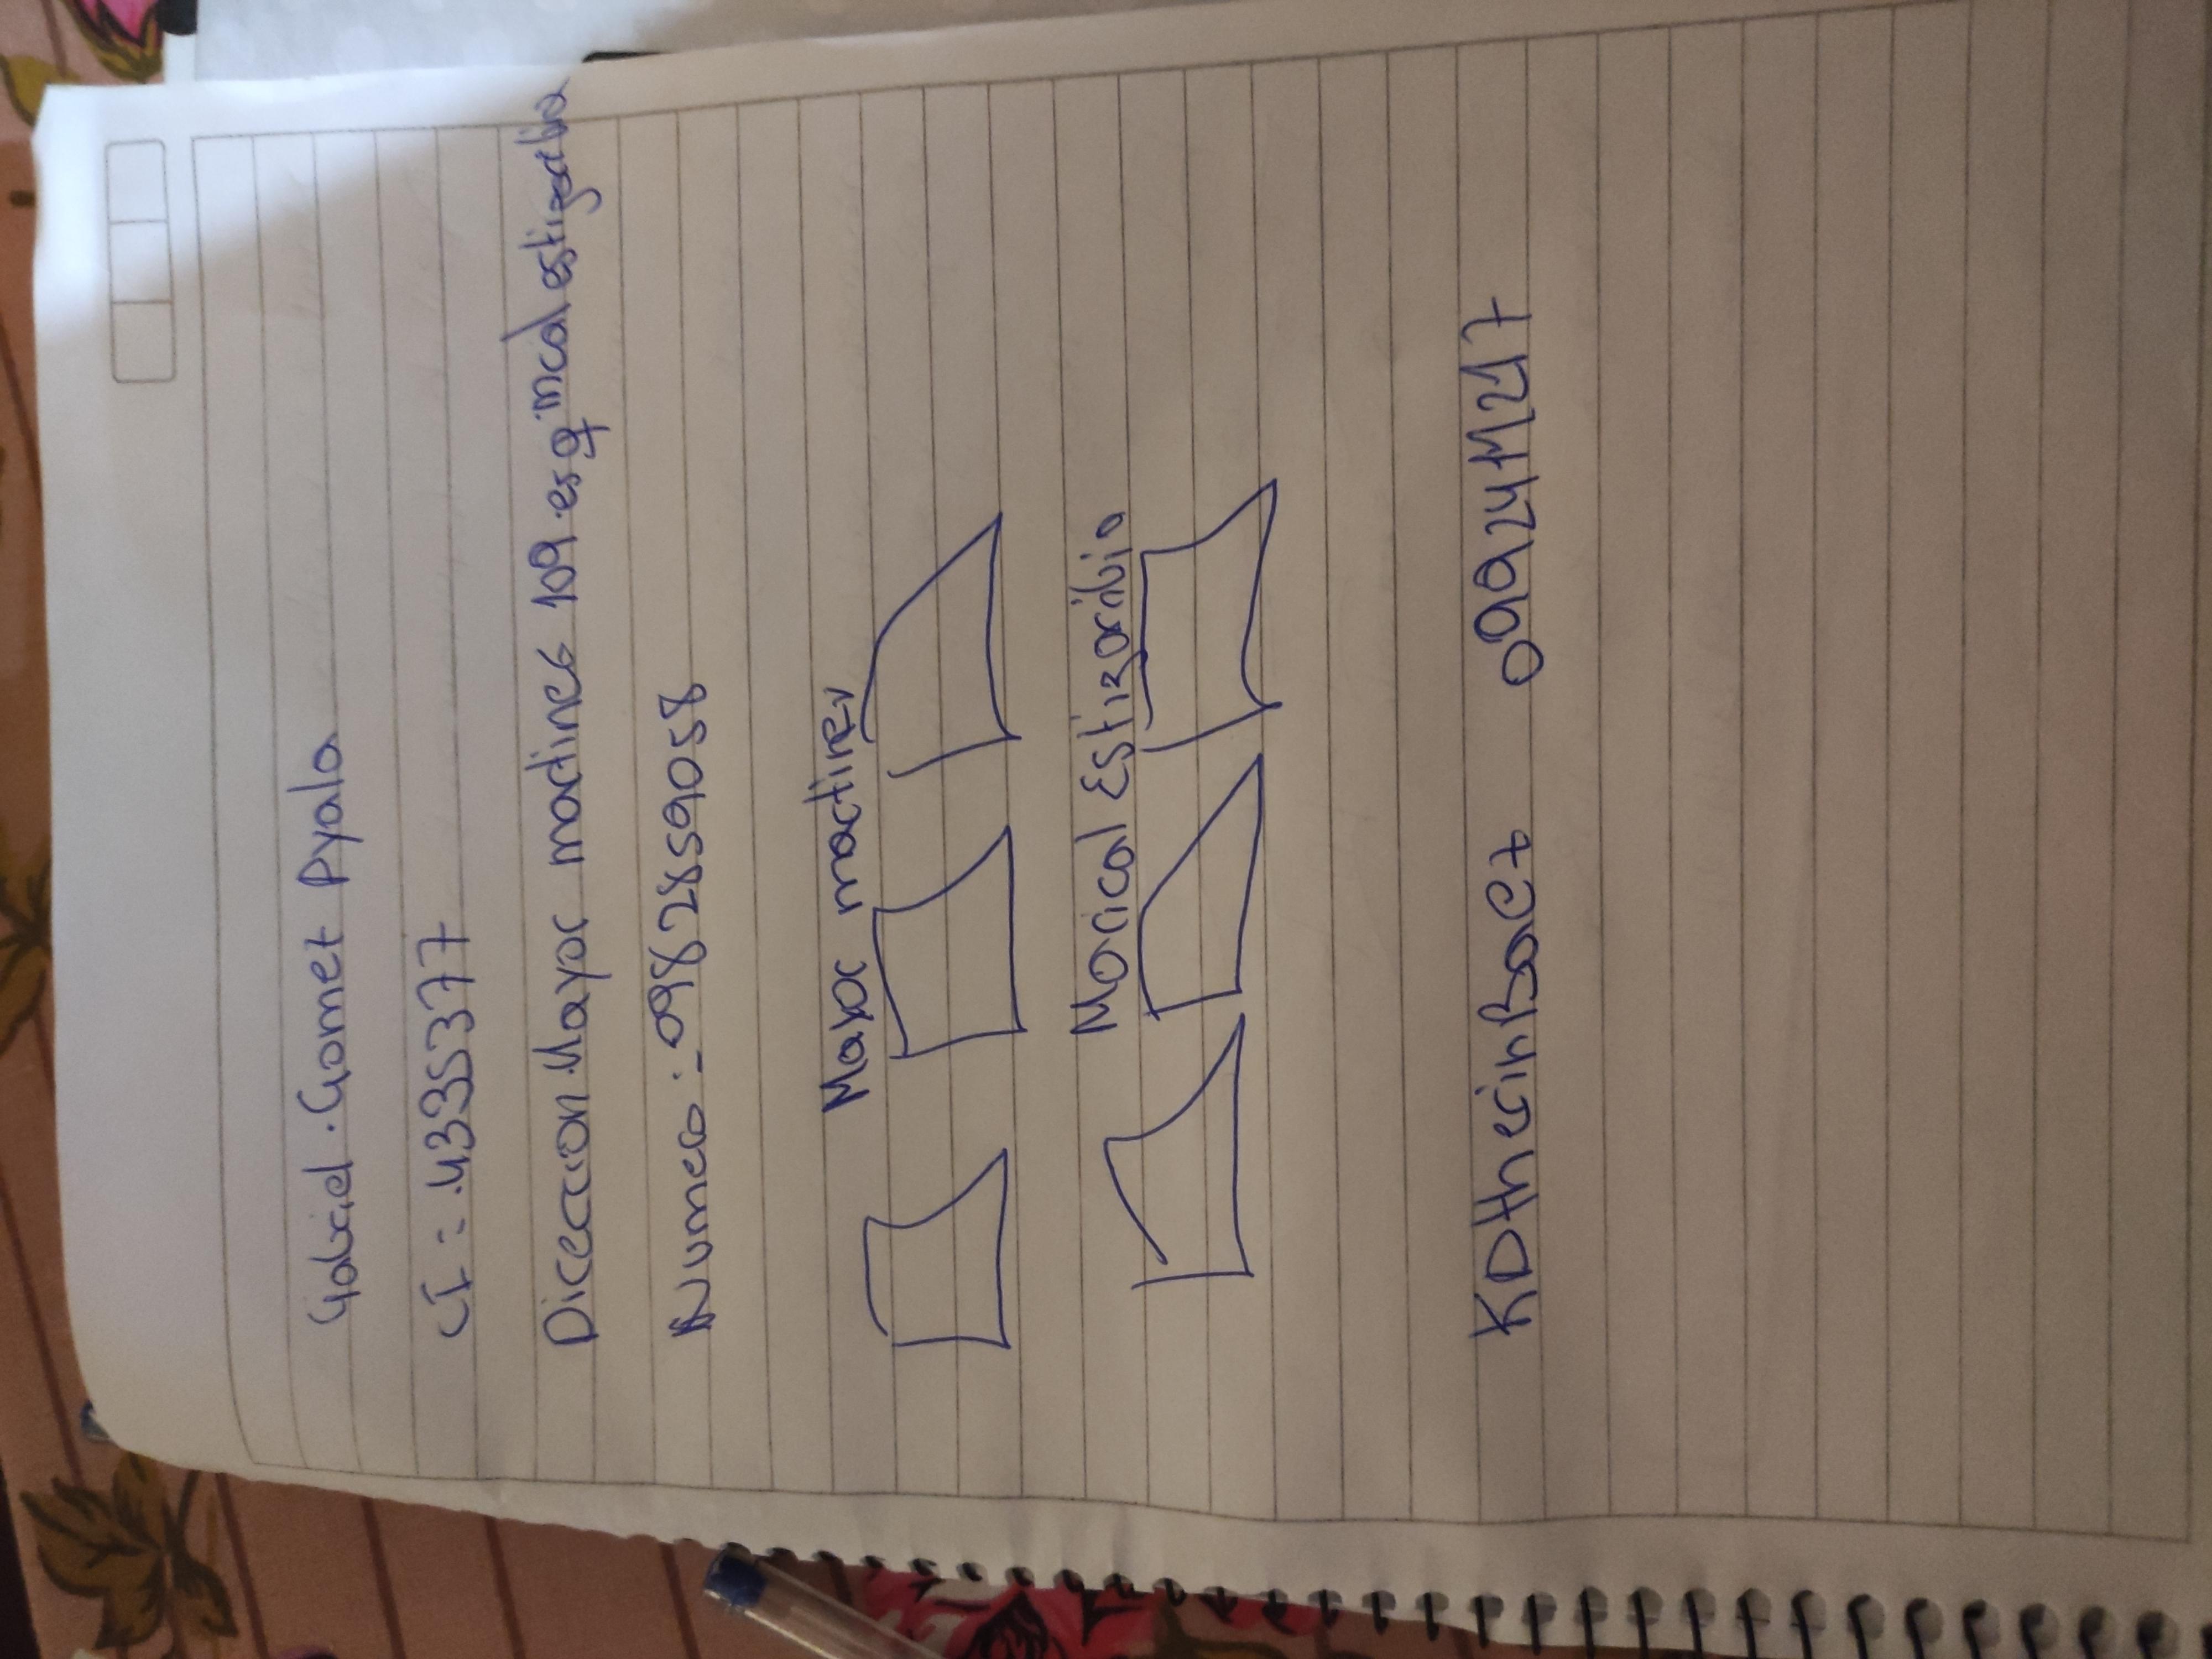 Gabriel. Gomet Pyala
CI = .4335377
Direccion Mayor madinec 109.esq mcal estigarlia
Numero :-0982859058
Mayor mactirev
Marical Estizaribia
KDtherinBaez 0992411217